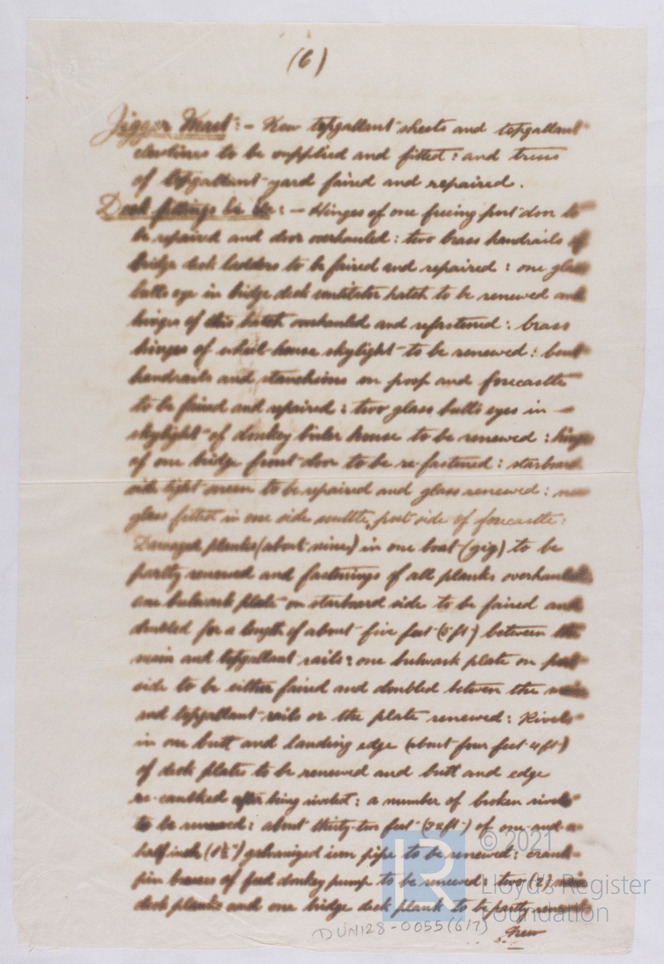 (6)
Jigger Mast :- New topgallant sheets and topgallant
clewlines to be supplied and fitted : and truss
of topgallant yard faired and repaired .
Deck fittings &c &c : - Hinges of one freeing port door to
be repaired and door overhauled : two brass handrails of
bridge deck ladders to be faired and repaired : one glass
bulls eye in bridge deck ventilator hatch to be renewed and
hinges of this hatch overhauled and refastened : brass
hinges of wheel-house skylight to be renewed : bent
handrails and stanchions on poop and forecastle
to be faired and repaired : two glass bulls eyes in -
skylight of donkey boiler house to be renewed : hinge
of one bridge front door to be re-fastened : starboard
side light screen to be repaired and glass renewed : new
glass fitted in one side scuttle, port side of forecastle :
Damaged planks (about nine) in one boat (gig) to be
partly renewed and fastenings of all planks overhauled :
one bulwark plate on starboard side to be faired and
doubled for a length of about five feet (5 ft) between the
main and topgallant rails : one bulwark plate on port
side to be either faired and doubled between the main
and topgallant rails or the plate renewed : Rivets
in one butt and landing edge (about four feet 4 ft)
of deck plates to be renewed and butt and edge
re-caulked after being riveted : a number of broken rivets
to be renewed : about thirty two feet (32 ft) of one-and-a-
half inch (1½") galvanized iron pipe to be renewed : crank-
pin brasses of feed donkey pump to be renewed : two (2) main
deck planks and one bridge deck plank to be partly renewed
DUN128-0055(6/7)
© 2021
Lloyd's Register
Foundation
LR